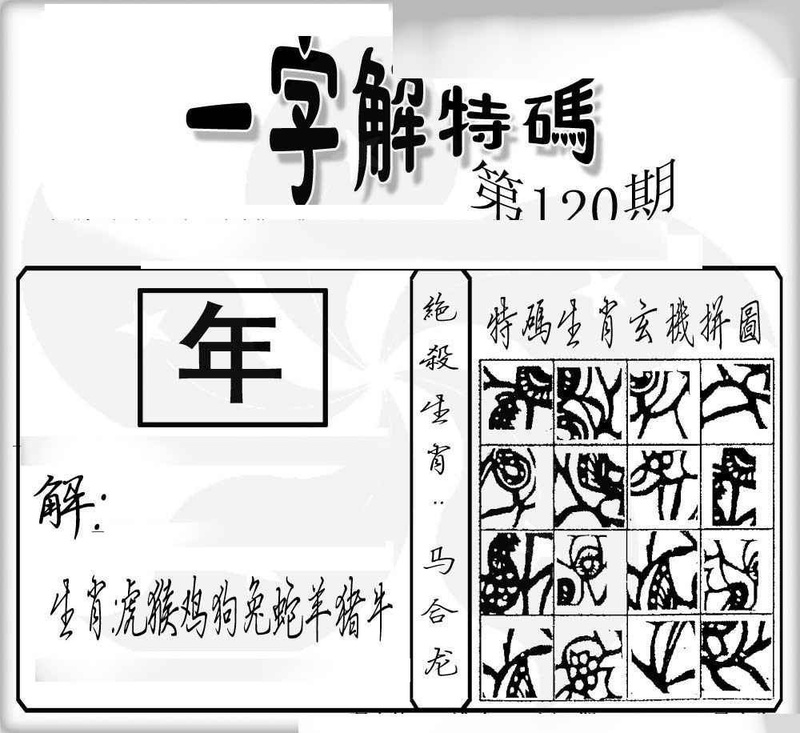 一字解特碼
第120期
年
解:
生肖:虎猴鸡狗兔蛇羊猪牛
絶殺生肖:马合龙
特碼生肖玄機拼圖